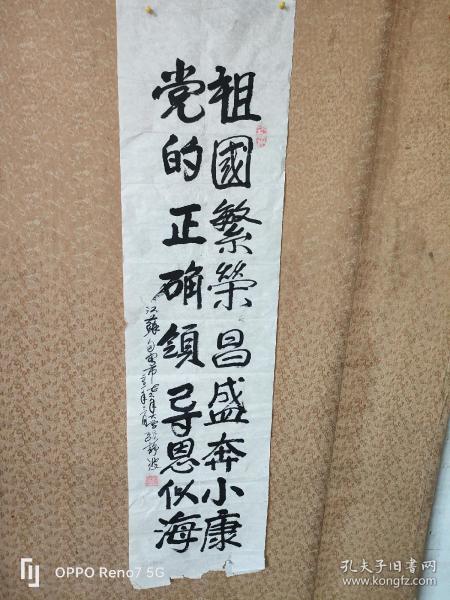 祖國繁榮昌盛奔小康
党的正确領导恩似海
OPPO Reno7 5G
孔夫子旧书网
www.kongfz.com